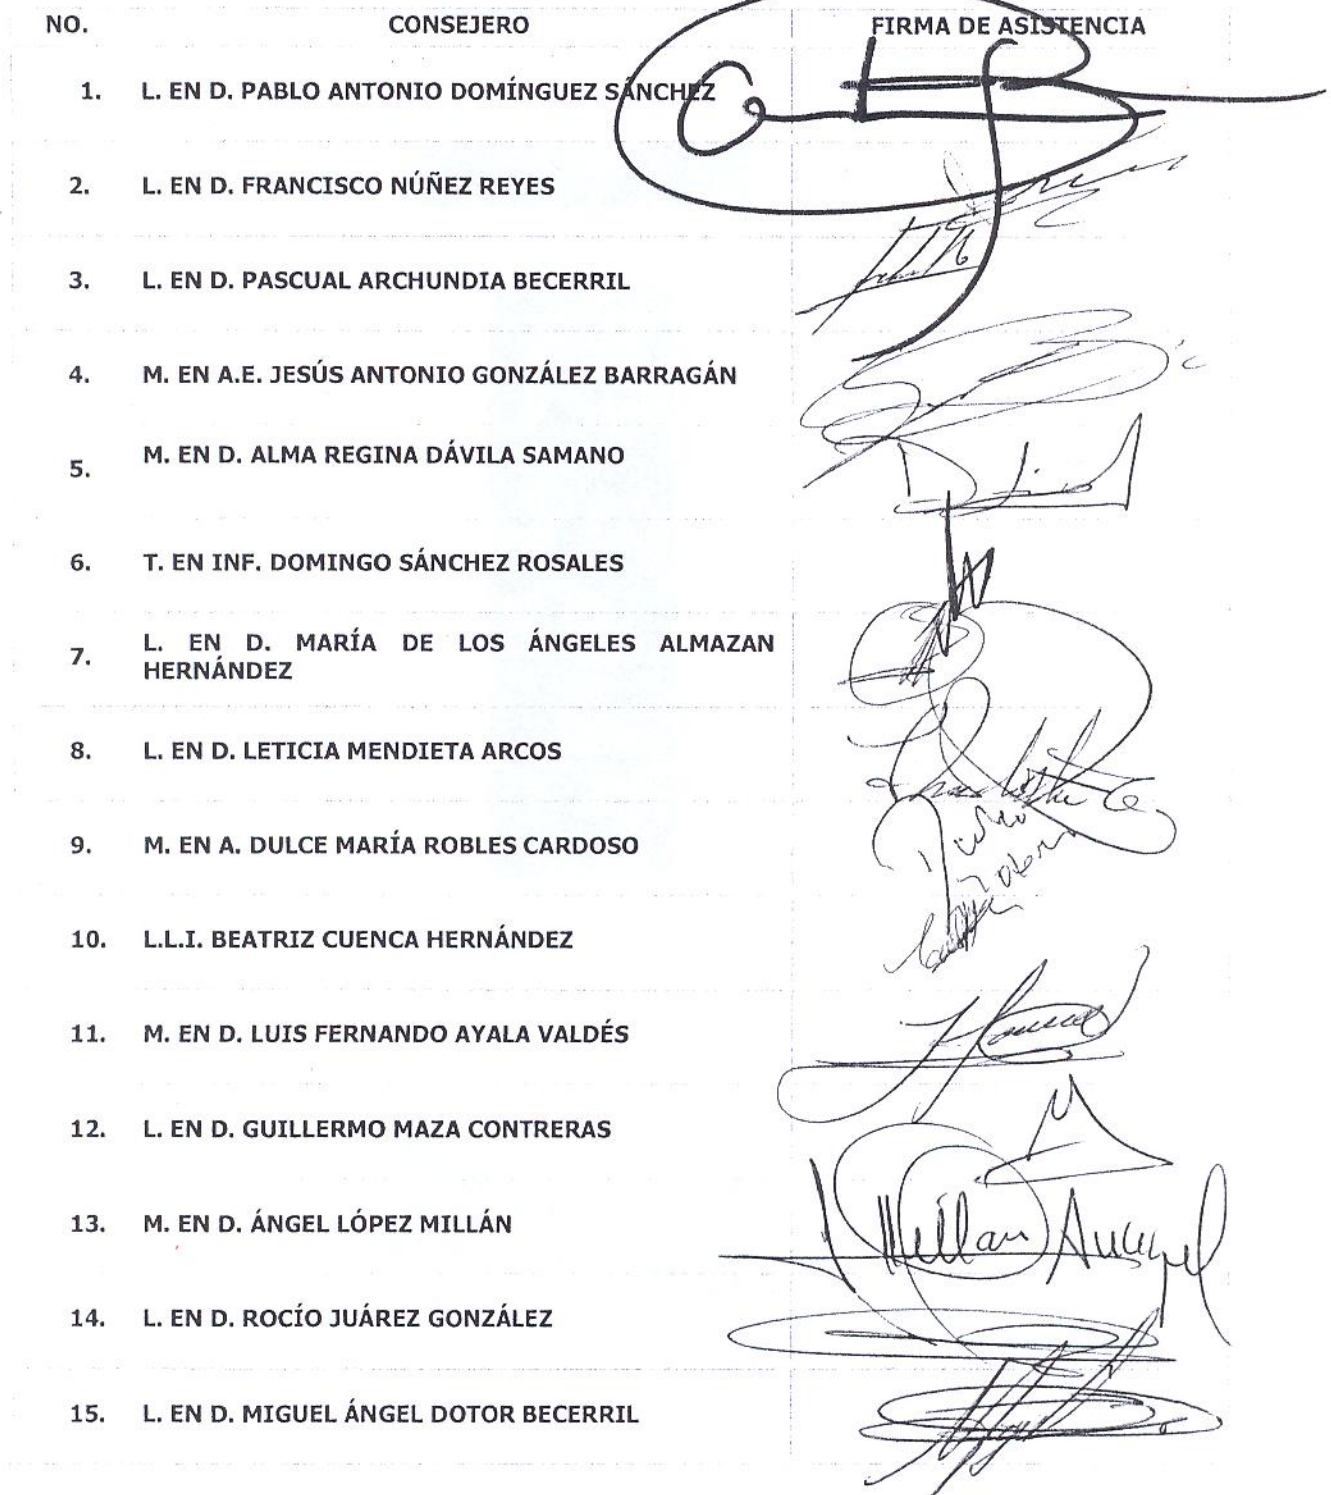 NO. CONSEJERO FIRMA DE ASISTENCIA
1. L. EN D. PABLO ANTONIO DOMÍNGUEZ SÁNCHEZ
2. L. EN D. FRANCISCO NÚÑEZ REYES
3. L. EN D. PASCUAL ARCHUNDIA BECERRIL
4. M. EN A.E. JESÚS ANTONIO GONZÁLEZ BARRAGÁN
5. M. EN D. ALMA REGINA DÁVILA SAMANO
6. T. EN INF. DOMINGO SÁNCHEZ ROSALES
7. L. EN D. MARÍA DE LOS ÁNGELES ALMAZAN
HERNÁNDEZ
8. L. EN D. LETICIA MENDIETA ARCOS
9. M. EN A. DULCE MARÍA ROBLES CARDOSO
10. L.L.I. BEATRIZ CUENCA HERNÁNDEZ
11. M. EN D. LUIS FERNANDO AYALA VALDÉS
12. L. EN D. GUILLERMO MAZA CONTRERAS
13. M. EN D. ÁNGEL LÓPEZ MILLÁN Millan Angel
14. L. EN D. ROCÍO JUÁREZ GONZÁLEZ
15. L. EN D. MIGUEL ÁNGEL DOTOR BECERRIL